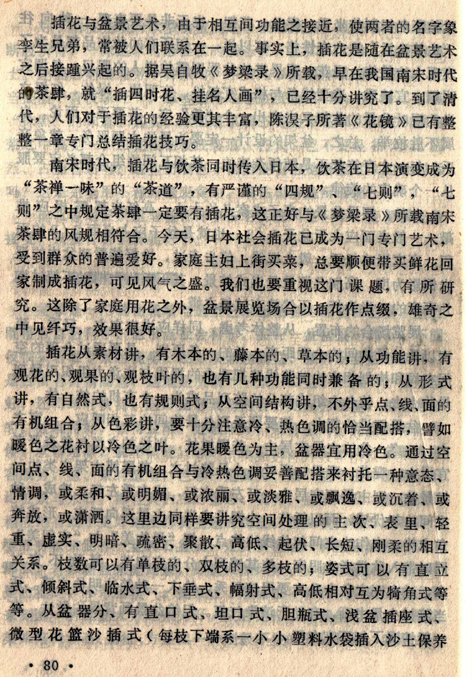 插花与盆景艺术，由于相互间功能之接近，使两者的名字象
孪生兄弟，常被人们联系在一起。事实上，插花是随在盆景艺术
之后接踵兴起的。据吴自牧《梦梁录》所载，早在我国南宋时代
的茶肆，就“插四时花、挂名人画”，已经十分讲究了。到了清
代，人们对于插花的经验更其丰富，陈淏子所著《花镜》已有整
整一章专门总结插花技巧。
南宋时代，插花与饮茶同时传入日本，饮茶在日本演变成为
“茶禅一味”的“茶道”，有严谨的“四规”、“七则”，“七
则”之中规定茶肆一定要有插花，这正好与《梦梁录》所载南宋
茶肆的风规相符合。今天，日本社会插花已成为一门专门艺术，
受到群众的普遍爱好。家庭主妇上街买菜，总要顺便带买鲜花回
家制成插花，可见风气之盛。我们也要重视这门课题，有所研
究。这除了家庭用花之外，盆景展览场合以插花作点缀，雄奇之
中见纤巧，效果很好。
插花从素材讲，有木本的、藤本的、草本的；从功能讲，有
观花的、观果的、观枝叶的，也有几种功能同时兼备的；从形式
讲，有自然式，也有规则式；从空间结构讲，不外乎点、线、面的
有机组合；从色彩讲，要十分注意冷、热色调的恰当配搭，譬如
暖色之花衬以冷色之叶。花果暖色为主，盆器宜用冷色。通过空
间点、线、面的有机组合与冷热色调妥善配搭来衬托一种意态、
情调，或柔和、或明媚、或浓丽、或淡雅、或飘逸、或沉着、或
奔放，或潇洒。这里边同样要讲究空间处理的主次、表里、轻
重、虚实、明暗、疏密、聚散、高低、起伏、长短、刚柔的相互
关系。枝数可以有单枝的、双枝的、多枝的；姿式可以有直立
式、倾斜式、临水式、下垂式、幅射式、高低相对互为犄角式等
等。从盆器分、有直口式、坦口式、胆瓶式、浅盆插座式、
微型花篮沙插式（每枝下端系一小小塑料水袋插入沙土保养
• 80 •